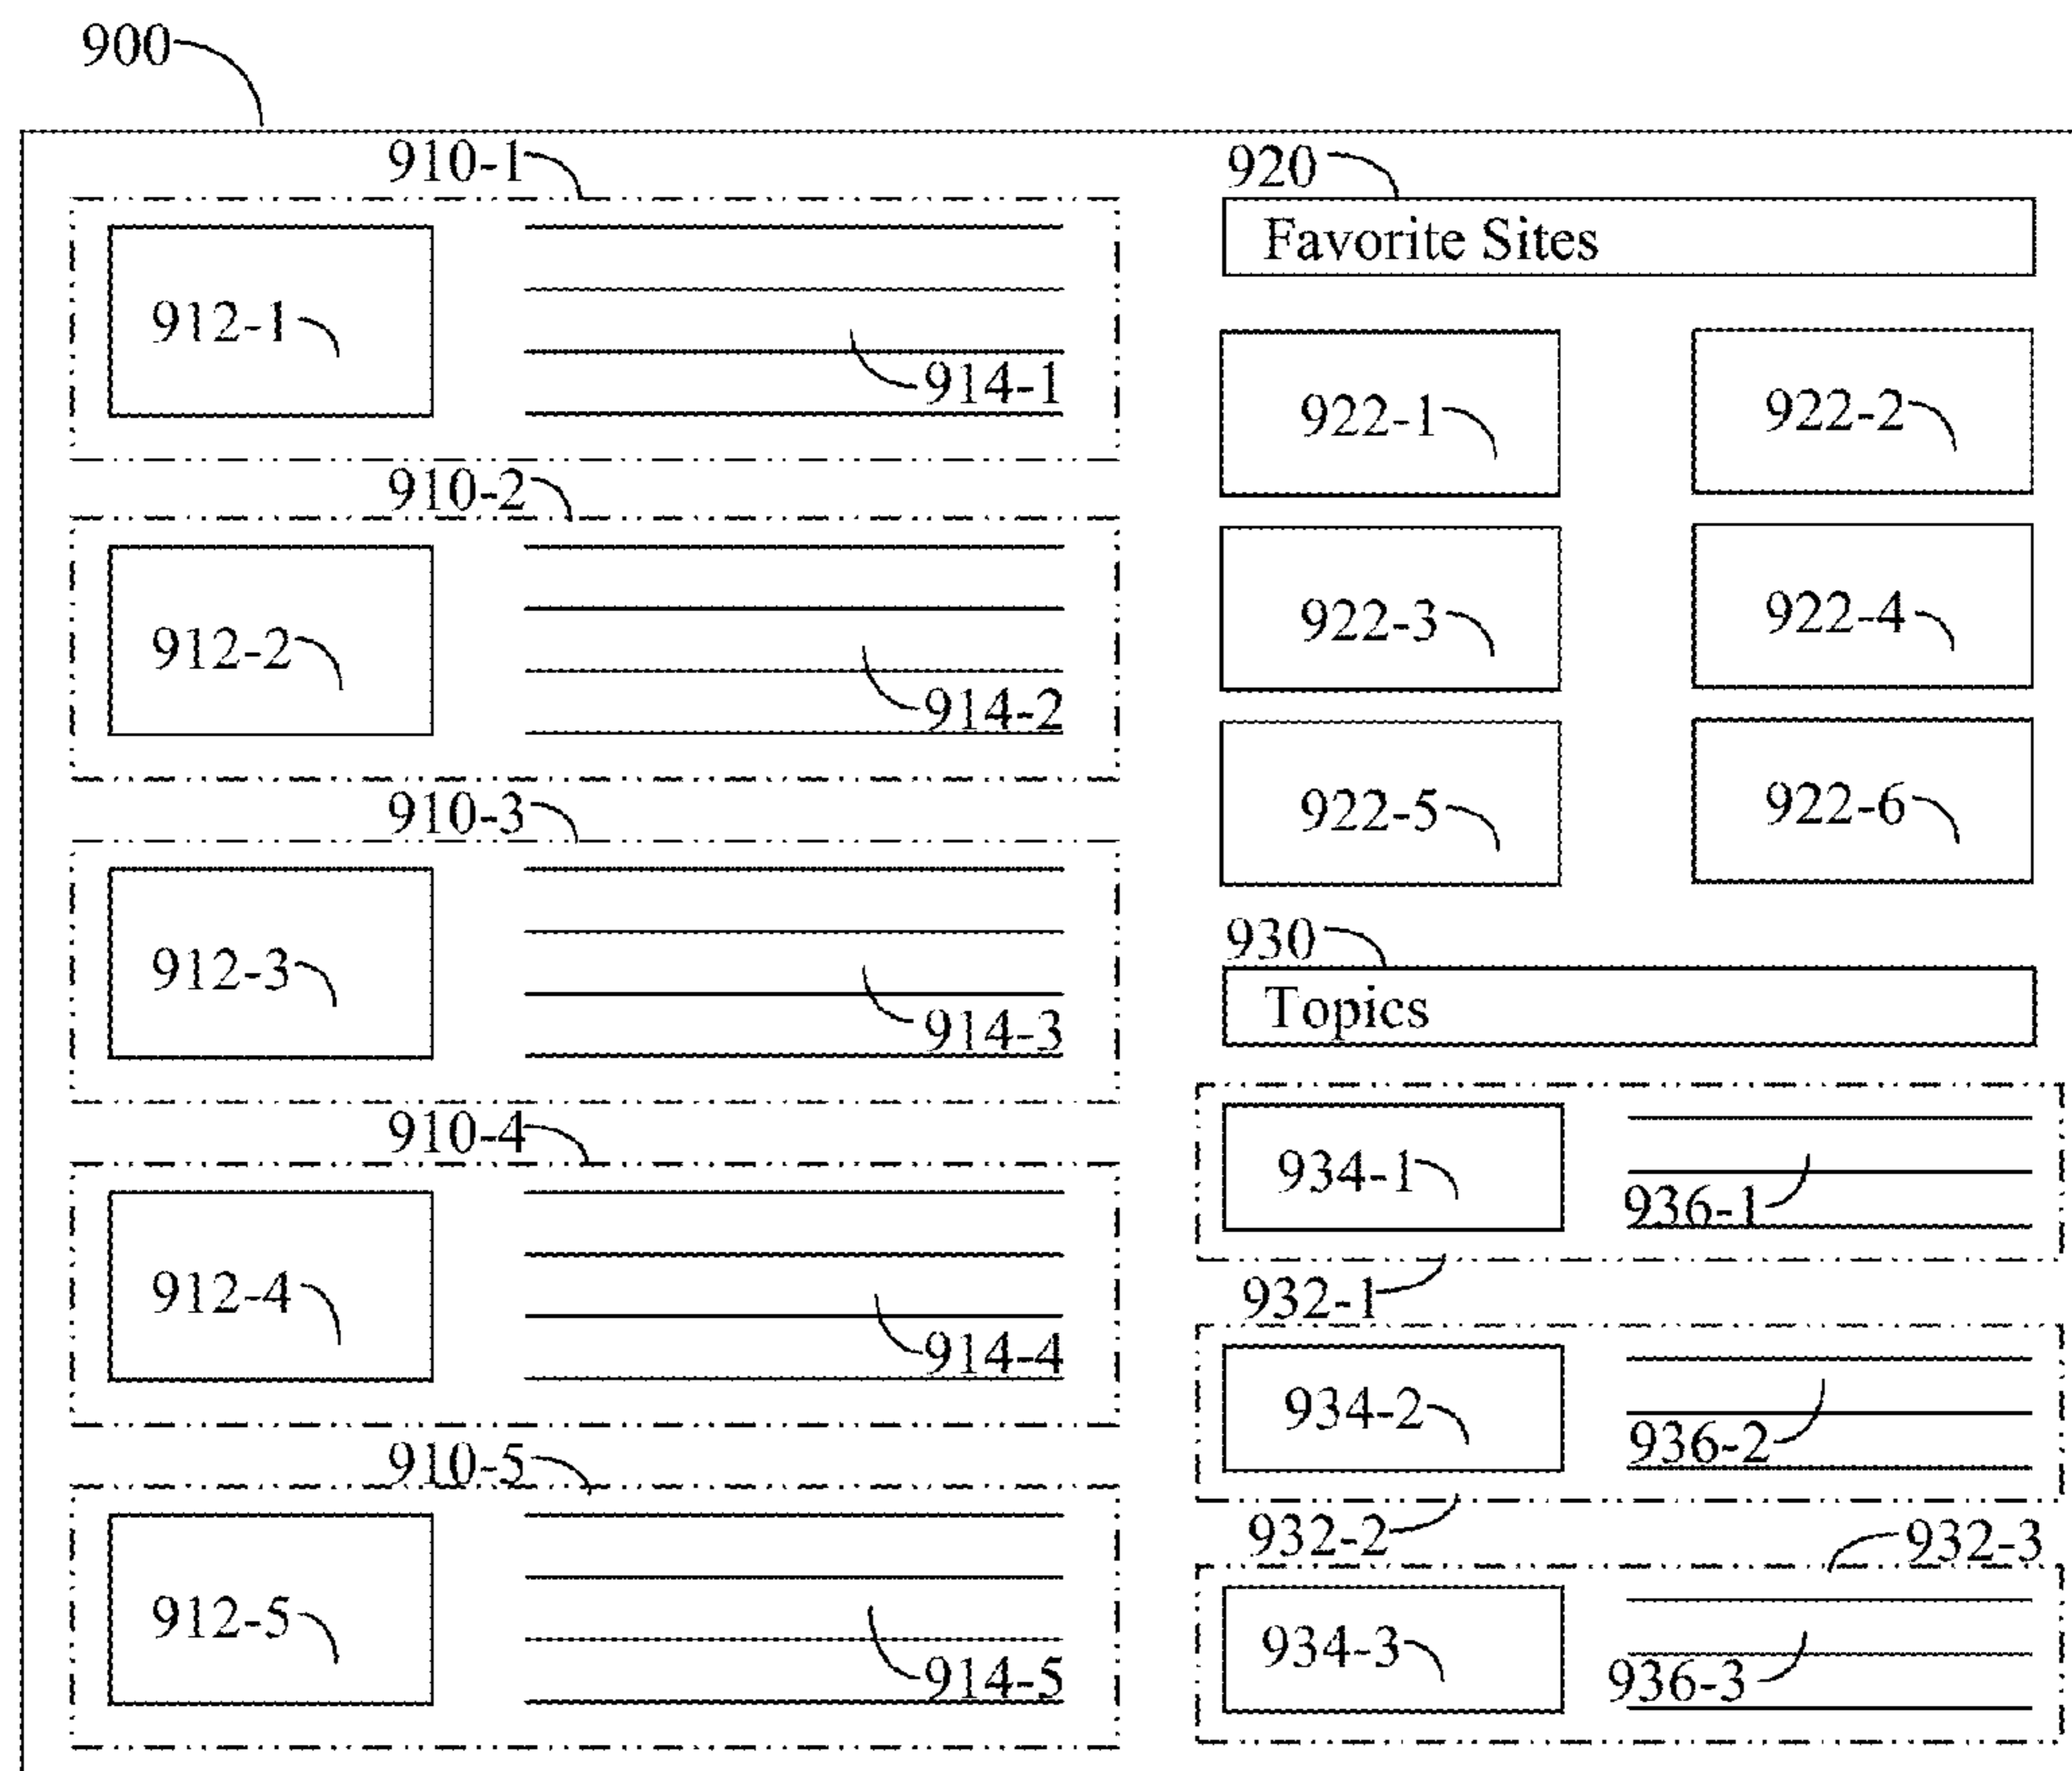 900
910-1
912-1
914-1
910-2
912-2
914-2
910-3
912-3
914-3
910-4
912-4
914-4
910-5
912-5
914-5
920
Favorite Sites
922-1 922-2
922-3 922-4
922-5 922-6
930
Topics
934-1
936-1
932-1
934-2
936-2
932-2
932-3
934-3
936-3